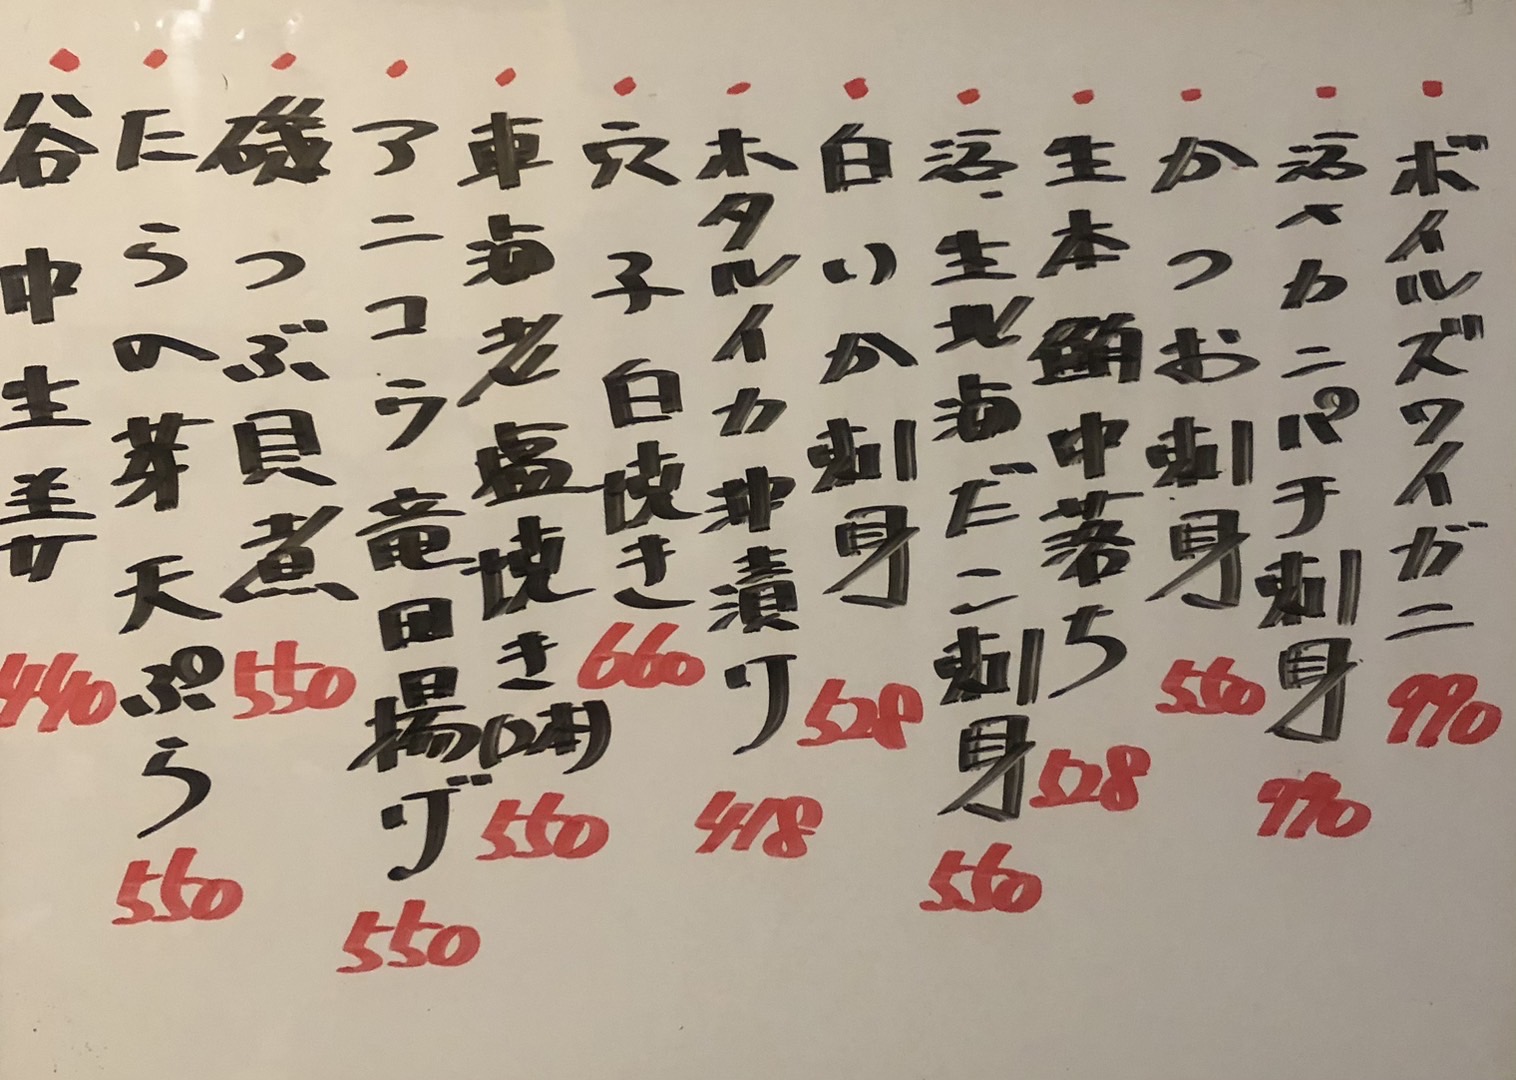 ボイルズワイガニ 990
活〆カニパチ刺身 770
かつお刺身 560
生本鮪中落ち 528
活〆生北海だこ刺身 560
白いか刺身 528
ホタルイカ沖漬り 418
穴子白焼き 660
車海老塩焼き(2本) 550
アニコウ竜田揚げ 550
磯つぶ貝煮 550
たらの芽天ぷら 550
谷中生姜 440